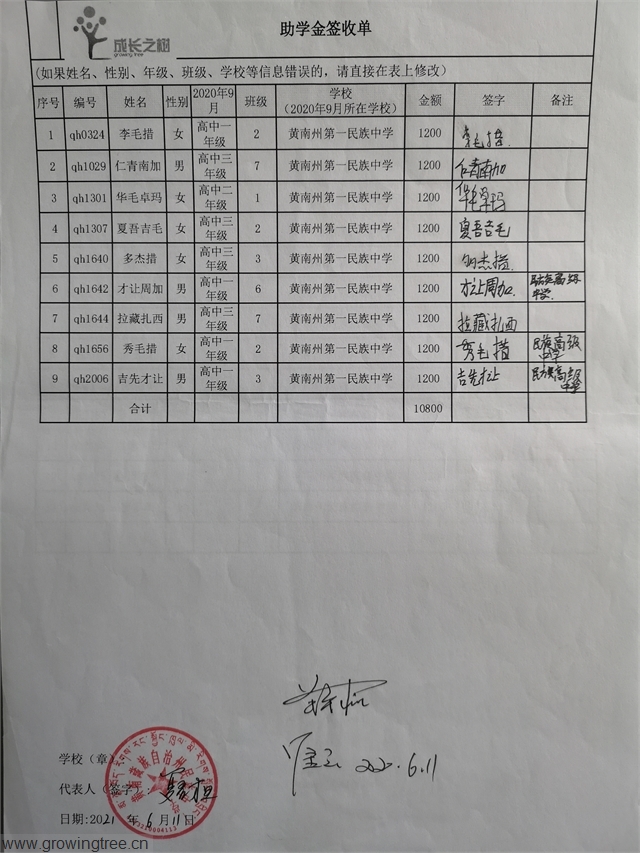 成长之树
growing tree
助学金签收单
(如果姓名、性别、年级、班级、学校等信息错误的，请直接在表上修改)
序号 编号 姓名 性别 2020年9月 班级 学校（2020年9月所在学校） 金额 签字 备注
1 qh0324 李毛措 女 高中一年级 2 黄南州第一民族中学 1200 李毛措
2 qh1029 仁青南加 男 高中三年级 7 黄南州第一民族中学 1200 仁青南加
3 qh1301 华毛卓玛 女 高中二年级 1 黄南州第一民族中学 1200 华毛卓玛
4 qh1307 夏吾吉毛 女 高中三年级 2 黄南州第一民族中学 1200 夏吾吉毛
5 qh1640 多杰措 女 高中三年级 3 黄南州第一民族中学 1200 多杰措
6 qh1642 才让周加 男 高中一年级 6 黄南州第一民族中学 1200 才让周加 民族高级中学
7 qh1644 拉藏扎西 男 高中三年级 7 黄南州第一民族中学 1200 拉藏扎西
8 qh1656 秀毛措 女 高中一年级 2 黄南州第一民族中学 1200 秀毛措 民族高级中学
9 qh2006 吉先才让 男 高中一年级 3 黄南州第一民族中学 1200 吉先才让 民族高级中学
合计 10800
2021.6.11
学校（章）
代表人（签字
日期:2021 年 6 月 11 日
www.growingtree.cn